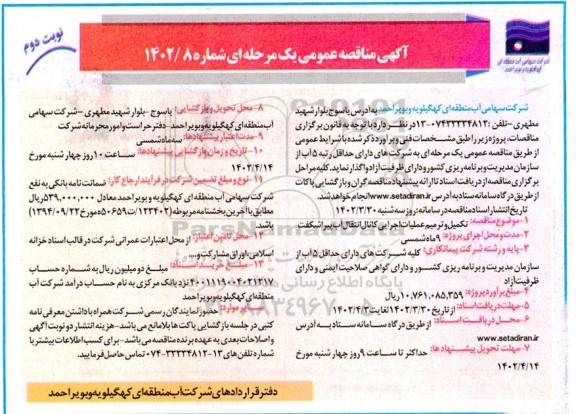 نوبت دوم
آگهی مناقصه عمومی یک مرحله ای شماره ۱۴۰۲/۸
شرکت سهامی آب منطقه ای
کهگیلویه و بویراحمد
شرکت سهامی آب منطقه ای کهگیلویه و بویراحمد به آدرس یاسوج بلوار شهید
مطهری-تلفن: ۳۳۳۳۴۸۱۲-۰۷۴-۱۳ در نظر دارد با توجه به قانون برگزاری
مناقصات، پروژه زیر را طبق مشخصات فنی و برآورد ذکر شده با شرایط عمومی
از طریق مناقصه عمومی یک مرحله ای به شرکت های دارای حداقل رتبه ۵ آب از
سازمان مدیریت و برنامه ریزی کشور و دارای ظرفیت آزاد واگذار نماید. کلیه مراحل
برگزاری مناقصه از دریافت اسناد تا ارائه پیشنهاد مناقصه گران و بازگشایی پاکات
از درگاه سامانه ستاد به آدرس www.setadiran.ir انجام خواهد شد.
تاریخ انتشار اسناد مناقصه در سامانه: روز سه شنبه ۱۴۰۲/۳/۳۰
۱-موضوع مناقصه: تکمیل و ترمیم عملیات اجرایی کانال انتقال آب پیرانبکفت
۲-مدت و محل اجرای پروژه: ۹ ماه شمسی
۳-پایه و رشته شرکت پیمانکاری: کلیه شرکت های دارای حداقل ۵ آب از
سازمان مدیریت و برنامه ریزی کشور و دارای گواهی صلاحیت ایمنی و دارای
ظرفیت آزاد
۴-مبلغ برآورد پروژه: ۱۰،۷۶۱،۰۸۵،۳۵۹ ریال
۵-مهلت دریافت اسناد: از تاریخ ۱۴۰۲/۳/۳۰ لغایت ۱۴۰۲/۴/۳
۶-محل دریافت اسناد: از طریق درگاه سامانه ستاد به آدرس
www.setadiran.ir
۷-مهلت تحویل پیشنهادها: حداکثر تا ساعت ۹ روز چهار شنبه مورخ
۱۴۰۲/۴/۱۴
۸-محل تحویل و بازگشایی: یاسوج -بلوار شهید مطهری -شرکت سهامی
آب منطقه ای کهگیلویه و بویراحمد-دفتر حراست و امور محرمانه شرکت
۹-مدت اعتبار پیشنهادها: سه ماه شمسی
۱۰-تاریخ و زمان بازگشایی پیشنهادها: ساعت ۱۰ روز چهار شنبه مورخ
۱۴۰۲/۴/۱۴
۱۱-نوع و مبلغ تضمین شرکت در فرآیند ارجاع کار: ضمانت نامه بانکی به نفع
شرکت سهامی آب منطقه ای کهگیلویه و بویراحمد معادل ۵۳۹،۰۰۰،۰۰۰ ریال
مطابق با آخرین بخشنامه مربوطه (۱۲۳۴۰۲/ت۵۰۶۵۹ه مورخ ۱۳۹۴/۰۹/۲۲)
باشد.
۱۲-محل تامین اعتبار: از محل اعتبارات عمرانی شرکت در قالب اسناد خزانه
اسلامی، اوراق مشارکت و....
۱۳-مبلغ خرید اسناد: مبلغ دو میلیون ریال به شماره حساب
نزد بانک مرکزی به نام حساب درآمد شرکت آب
منطقه ای کهگیلویه و بویراحمد
حضور نمایندگان رسمی شرکت همراه با داشتن معرفی نامه
کتبی در جلسه بازگشایی پاکت ها بلامانع می باشد-هزینه انتشار دو نوبت آگهی
و اصلاحات بعدی به عهده برنده مناقصه می باشد-برای کسب اطلاعات بیشتر با
شماره تلفن های ۱۳-۳۳۳۳۴۸۱۲-۰۷۴ تماس حاصل فرمایید.
دفتر قراردادهای شرکت آب منطقه ای کهگیلویه و بویراحمد